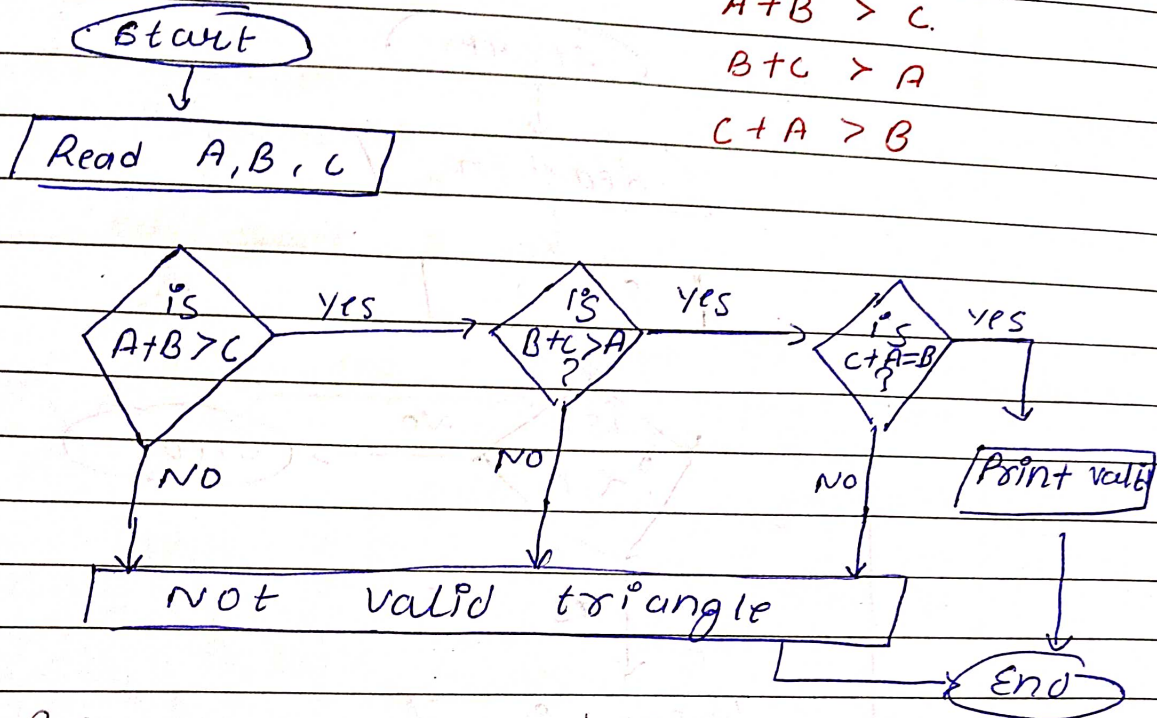 A+B > C.
Start
B+C > A
C+A > B
Read A, B, C
is
A+B>C
yes
is
B+C>A
?
yes
is
C+A=B
?
yes
NO
NO
NO
Print valid
Not valid triangle
End